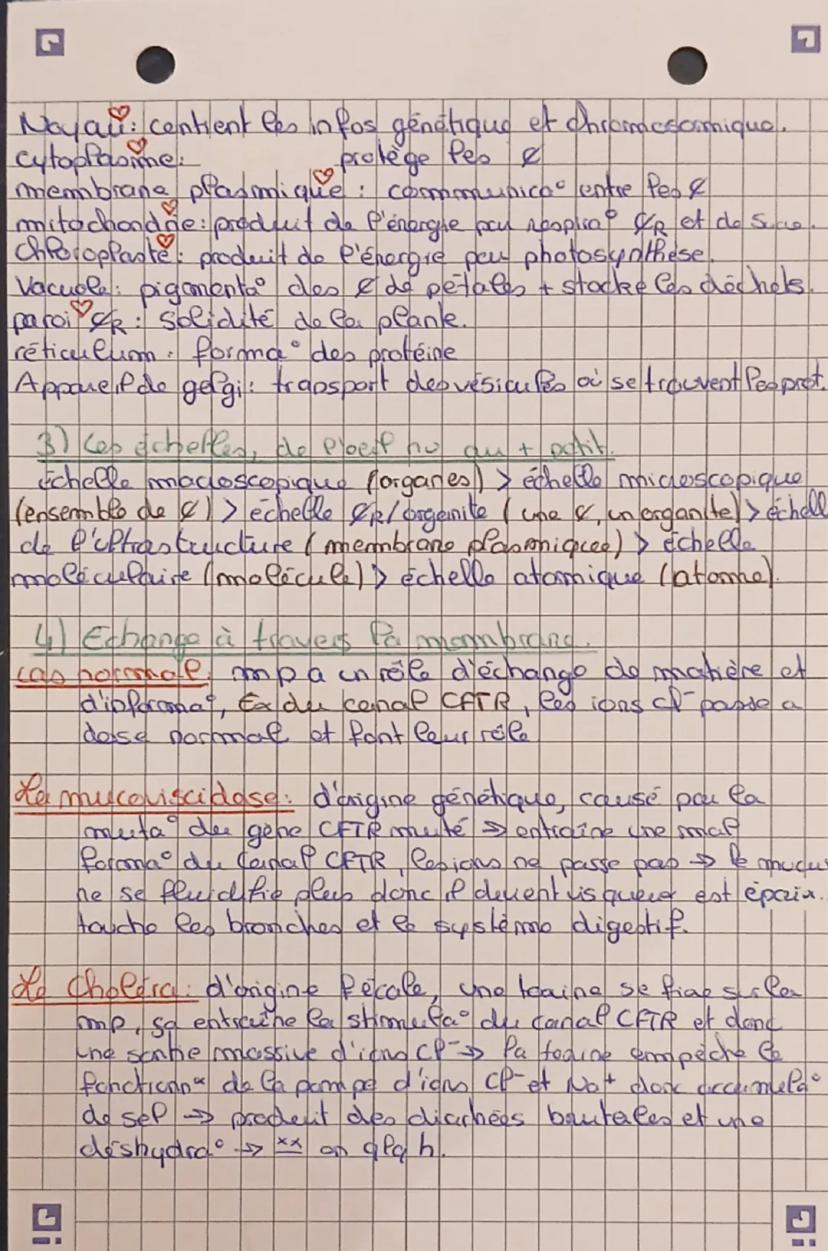 Noyau : contient les infos génétique et chromosomique.
cytoplasme : protège les ¢
membrane plasmique : communica° entre les ¢
mitochondrie : produit de l'énergie par respira° ¢R et de sucre.
Chloroplaste : produit de l'énergie par photosynthèse.
Vacuole : pigmenta° des ¢ de pétales + stocke les déchets.
paroi ¢R : solidité de la plante.
réticulum : forma° des protéine
Appareil de golgi : transport des vésicules où se trouvent les prot.
3) Les échelles, de l'oeil nu au + petit.
échelle macroscopique (organes) > échelle microscopique
(ensemble de ¢) > échelle ¢R/organite (une ¢, un organite) > échelle
de l'ultrastructure (membrane plasmique) > échelle
moléculaire (molécule) > échelle atomique (atome).
4) Echange à travers la membrane.
cas normale : mp a un rôle d'échange de matière et
d'informa°, Ex du canal CFTR, les ions Cl⁻ passe a
dose normal et font leur rôle
La mucoviscidose : d'origine génétique, causé par la
muta° du gene CFTR muté ⇒ entraine une mal
forma° du canal CFTR, les ions ne passe pas ⇒ le mucus
ne se fluidifie plus donc il devient visqueux est épaix.
touche les bronches et le système digestif.
Le Choléra : d'origine fécale, une toxine se fixe sur la
mp, sa entraine la stimula° du canal CFTR et donc
une sortie massive d'ions Cl⁻ ⇒ la toxine empêche le
fonctionnᵗ de la pompe d'ions Cl⁻ et Na⁺ donc accumula°
de sel → produit des diarhées brutales et une
déshydra° → xx en qlq h.